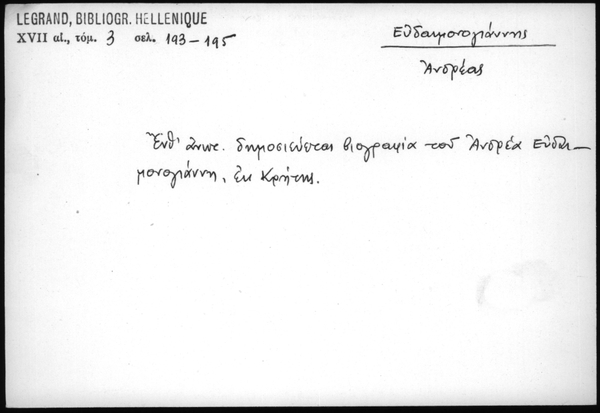 LEGRAND, BIBLIOGR. HELLENIQUE
XVII αἰ., τόμ. 3 σελ. 193–195
Εὐδαιμονογιάννης
Ἀνδρέας
Ἔνθ' ἀνωτ. δημοσιεύεται βιογραφία τοῦ Ἀνδρέα Εὐδαι–
μονογιάννη, ἐκ Κρήτης.